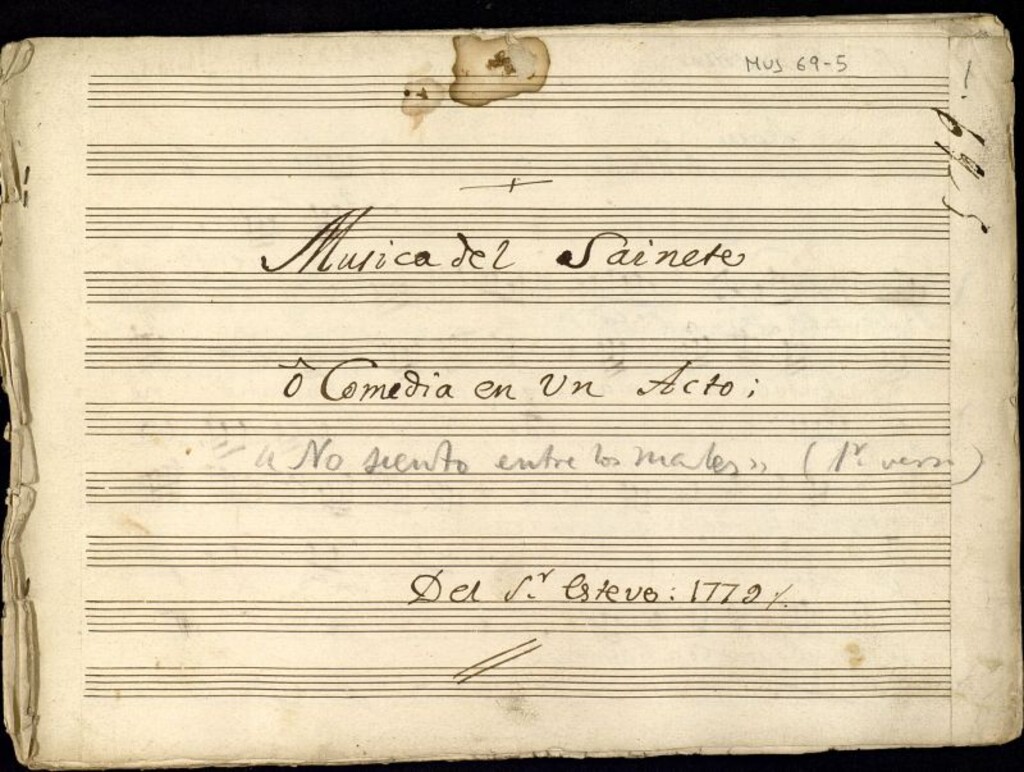 MUS 69-5
Musica del Sainete
ô Comedia en Un Acto;
"No siento entre los males" (1r. verso)
Del Sr. Esteve: 1779 %.
69-5